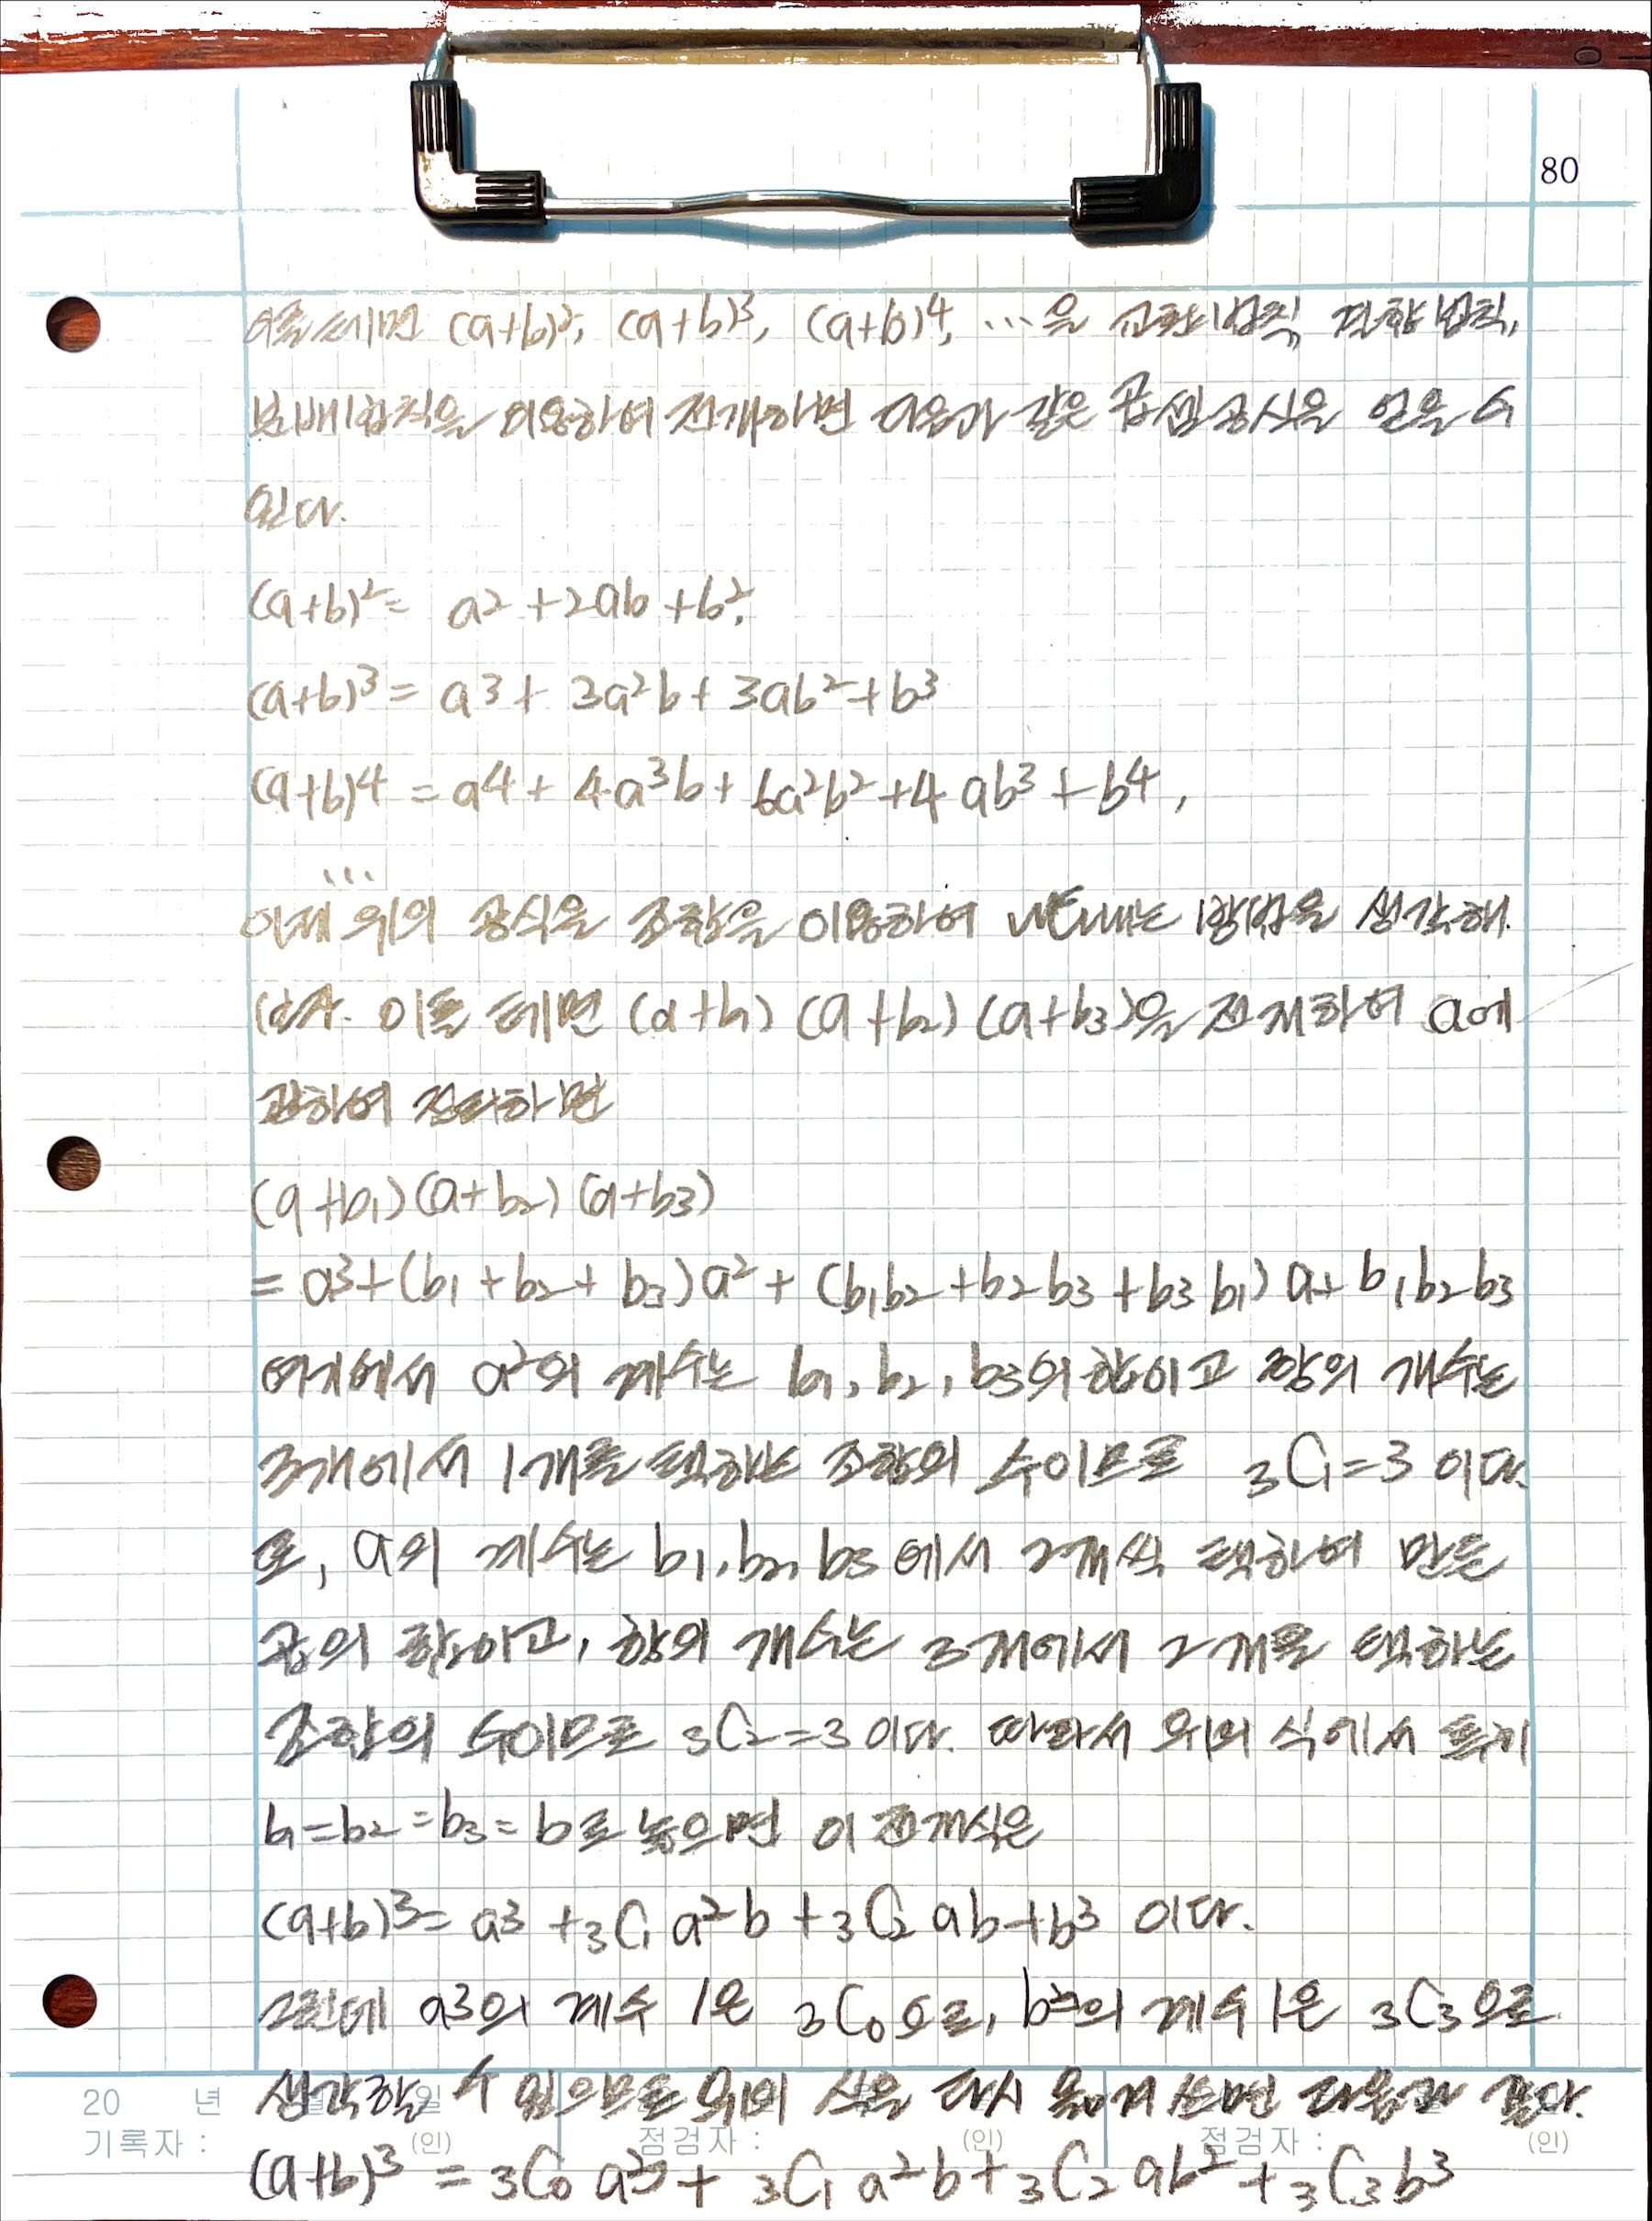 80
이를테면 (a+b)², (a+b)³, (a+b)⁴, …은 교환법칙, 결합법칙,
분배법칙을 이용하여 전개하면 다음과 같은 곱셈공식을 얻을 수
있다.
(a+b)² = a² + 2ab + b²,
(a+b)³ = a³ + 3a²b + 3ab² + b³
(a+b)⁴ = a⁴ + 4a³b + 6a²b² + 4ab³ + b⁴,
…
이제 위의 공식을 조합을 이용하여 나타내는 방법을 생각해
보자. 이를 테면 (a+b₁) (a+b₂) (a+b₃)을 전개하여 a에
관하여 정리하면
(a+b₁) (a+b₂) (a+b₃)
= a³ + (b₁ + b₂ + b₃)a² + (b₁b₂ + b₂b₃ + b₃b₁)a + b₁b₂b₃
여기에서 a²의 계수는 b₁, b₂, b₃의 합이고 항의 개수는
3개에서 1개를 택하는 조합의 수이므로 ₃C₁=3 이다.
또, a의 계수는 b₁, b₂, b₃에서 2개씩 택하여 만든
곱의 합이고, 항의 개수는 3개에서 2개를 택하는
조합의 수이므로 ₃C₂=3 이다. 따라서 위의 식에서 특히
b₁=b₂=b₃=b로 놓으면 이 전개식은
(a+b)³ = a³ + ₃C₁ a²b + ₃C₂ ab + b³ 이다.
그런데 a³의 계수 1은 ₃C₀으로, b³의 계수 1은 ₃C₃으로
생각할 수 있으므로 위의 식을 다시 옮겨 쓰면 다음과 같다.
20 년 일
기록자 : (인) 점검자 : (인) 점검자 : (인)
(a+b)³ = ₃C₀ a³ + ₃C₁ a²b + ₃C₂ ab² + ₃C₃ b³